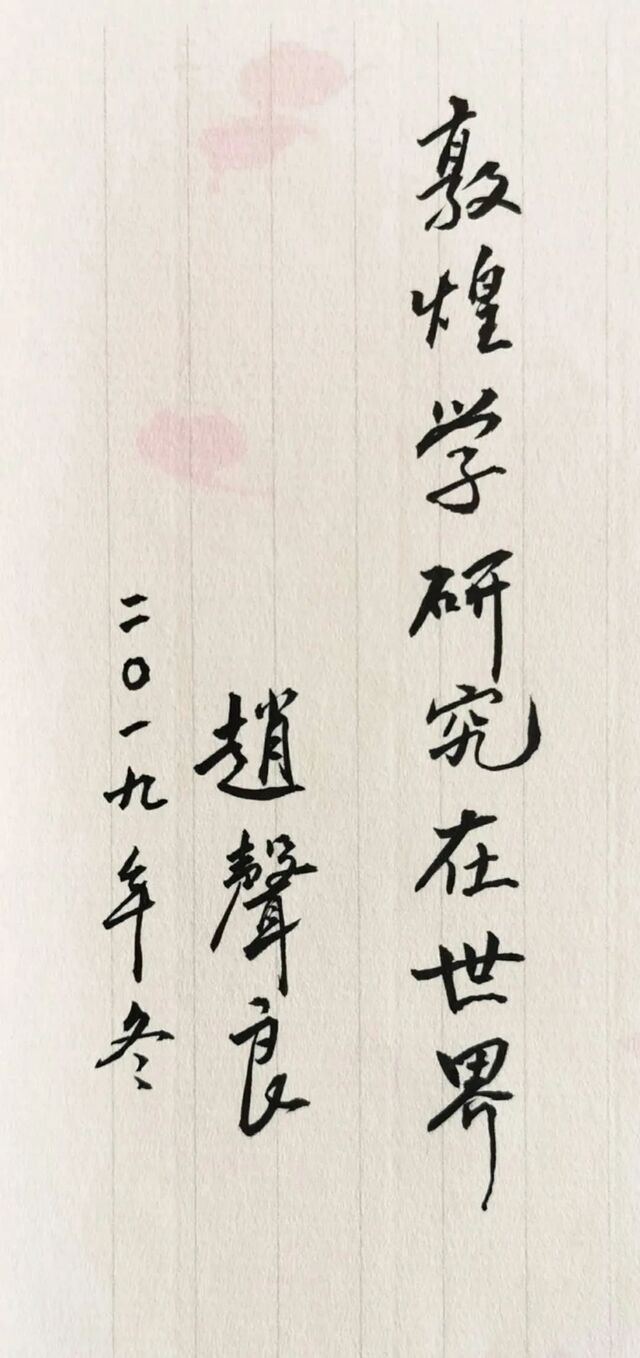 敦煌学研究在世界
趙聲良
二〇一九年冬